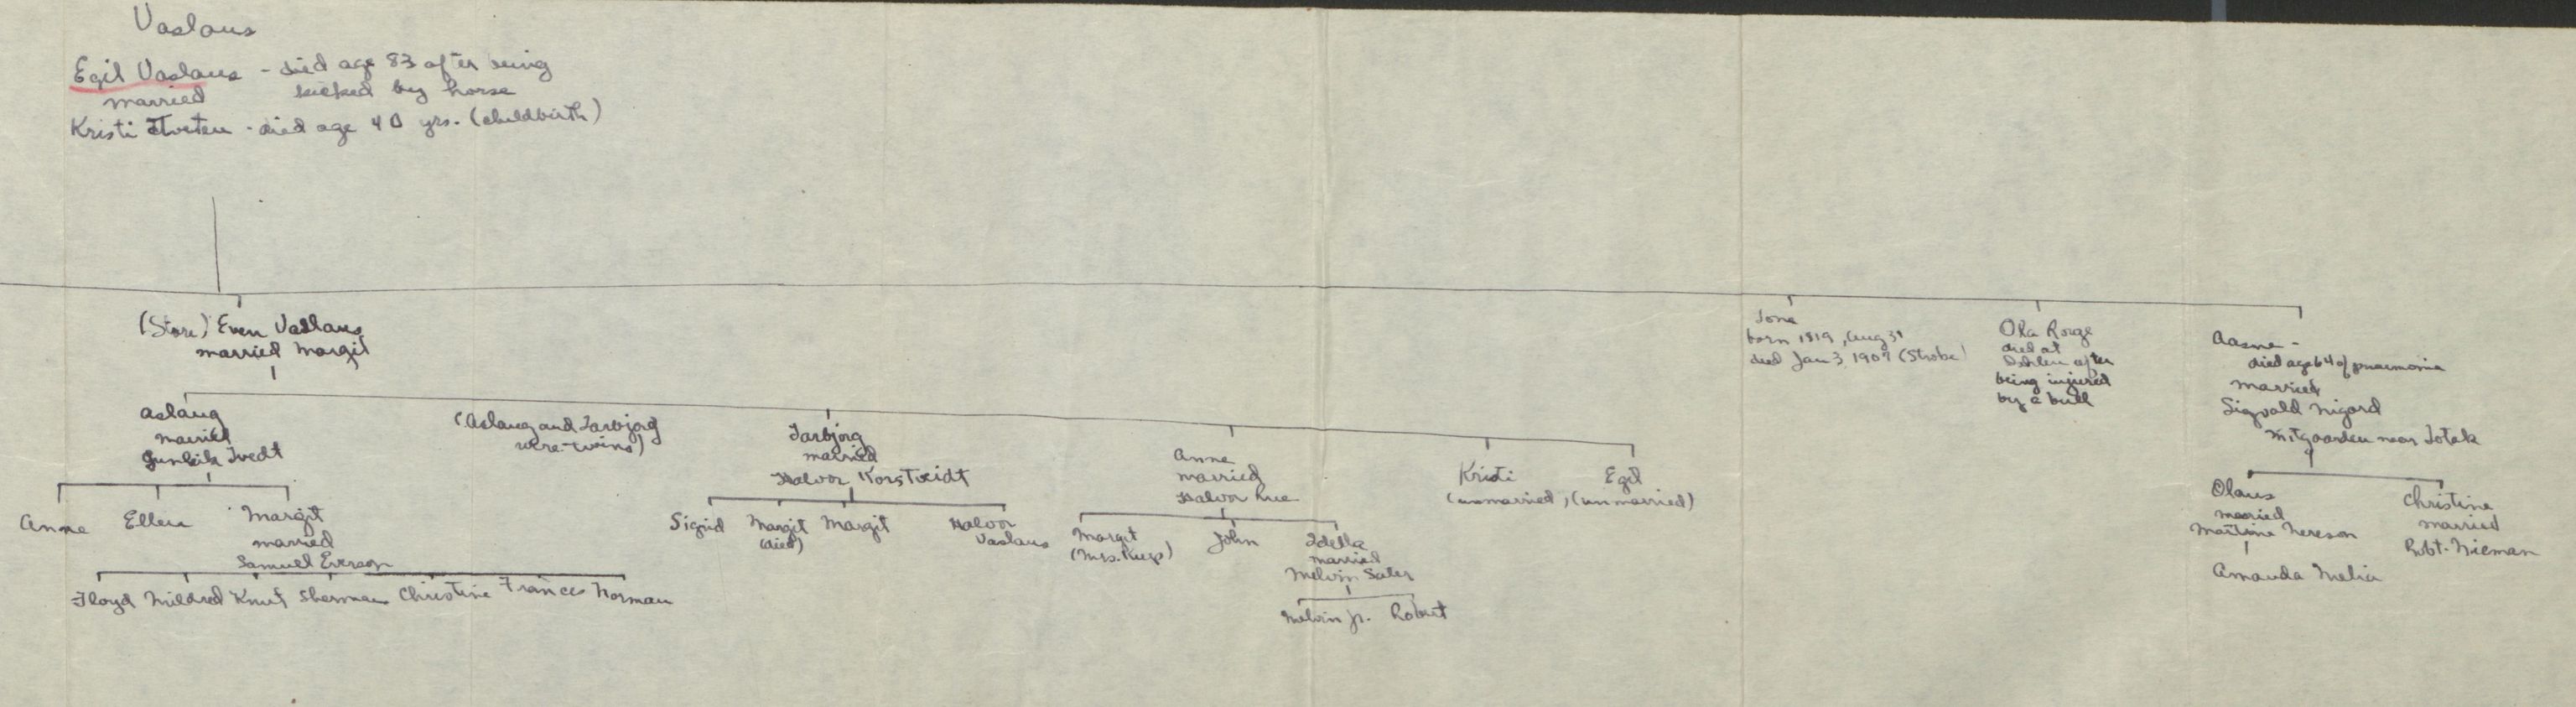 Vaslaus
Egil Vaslaus - died age 83 after being
married kicked by horse
Kristi Tveten - died age 40 yrs. (childbirth)
(Store) Even Vaslaus
married Margit
Aslaug
married
Tvedt
(Aslaug and Tarbjorg
were twins)
Tarbjorg
married
Halvor Korstveidt
Anne
married
Halvor Rue
Kristi
(unmarried)
Egil
(unmarried)
Tone
born 1819, Aug 31
died Jan 3, 1907 (Stroke)
died at
after
being injured
by a bull
Aasne -
died age 64 of pneumonia
married
Sigvald Nigard
near Totak
Anne
Ellen
Margit
married
Samuel Everson
Sigrid
Margit
(died)
Margit
Halvor
Vaslaus
Margit
John
Idella
married
Melvin Sater
Olaus
married
Martine Nereson
Christine
married
Robt. Nieman
Floyd Mildred Knut Sherman Christine Frances Norman
Melvin Jr. Robert
Amanda Melia